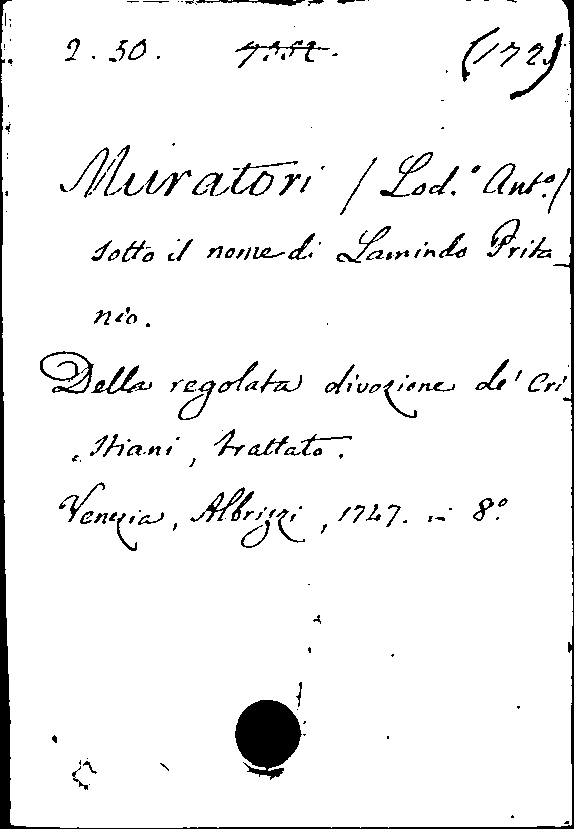 2.50. (172)
Muratori / Lod.º Ant.º /
sotto il nome di Lamindo Prita_
nio.
Della regolata divozione de' Cri_
stiani, trattato.
Venezia, Albrizzi, 1747. in 8.º